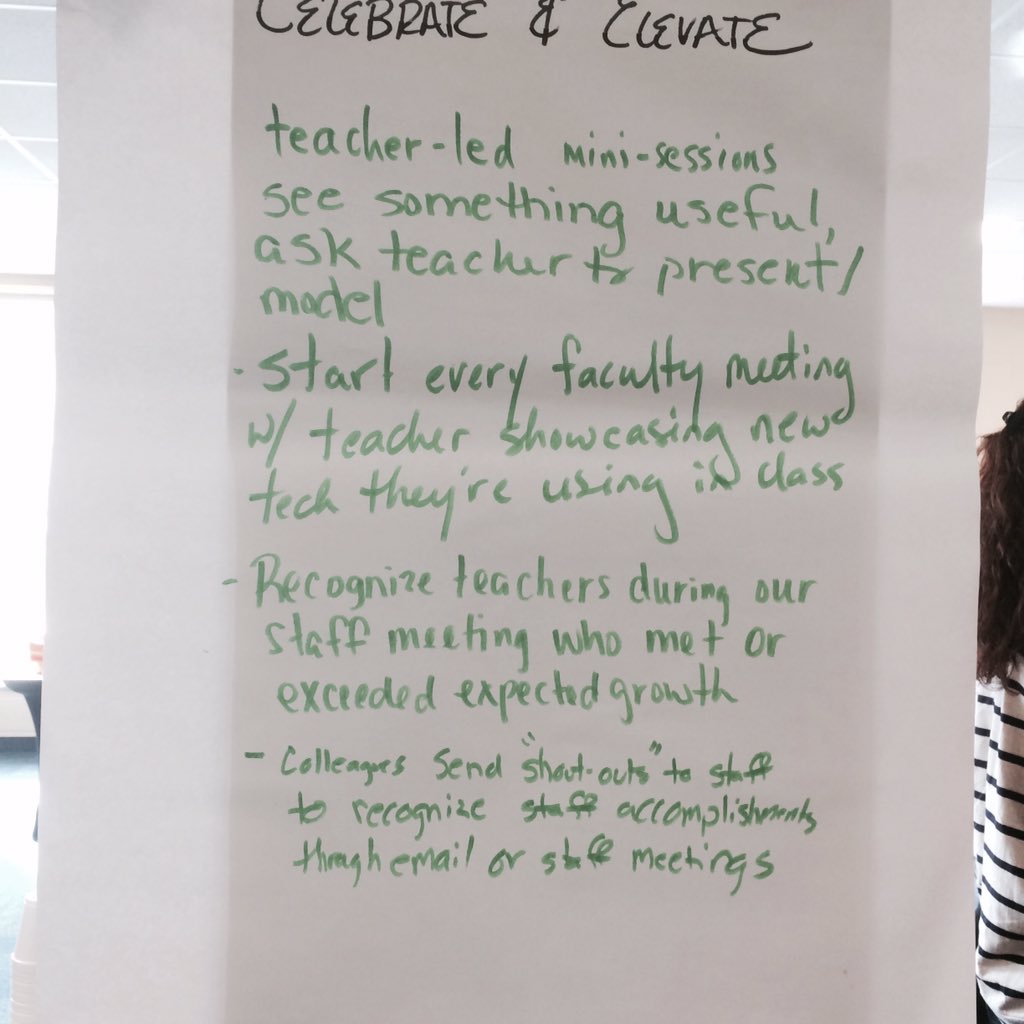 CELEBRATE & ELEVATE
teacher-led mini-sessions
see something useful,
ask teacher to present/
model
· Start every faculty meeting
w/ teacher showcasing new
tech they're using in class
- Recognize teachers during our
staff meeting who met or
exceeded expected growth
- Colleagues send "shout-outs" to staff
to recognize staff accomplishments
through email or staff meetings